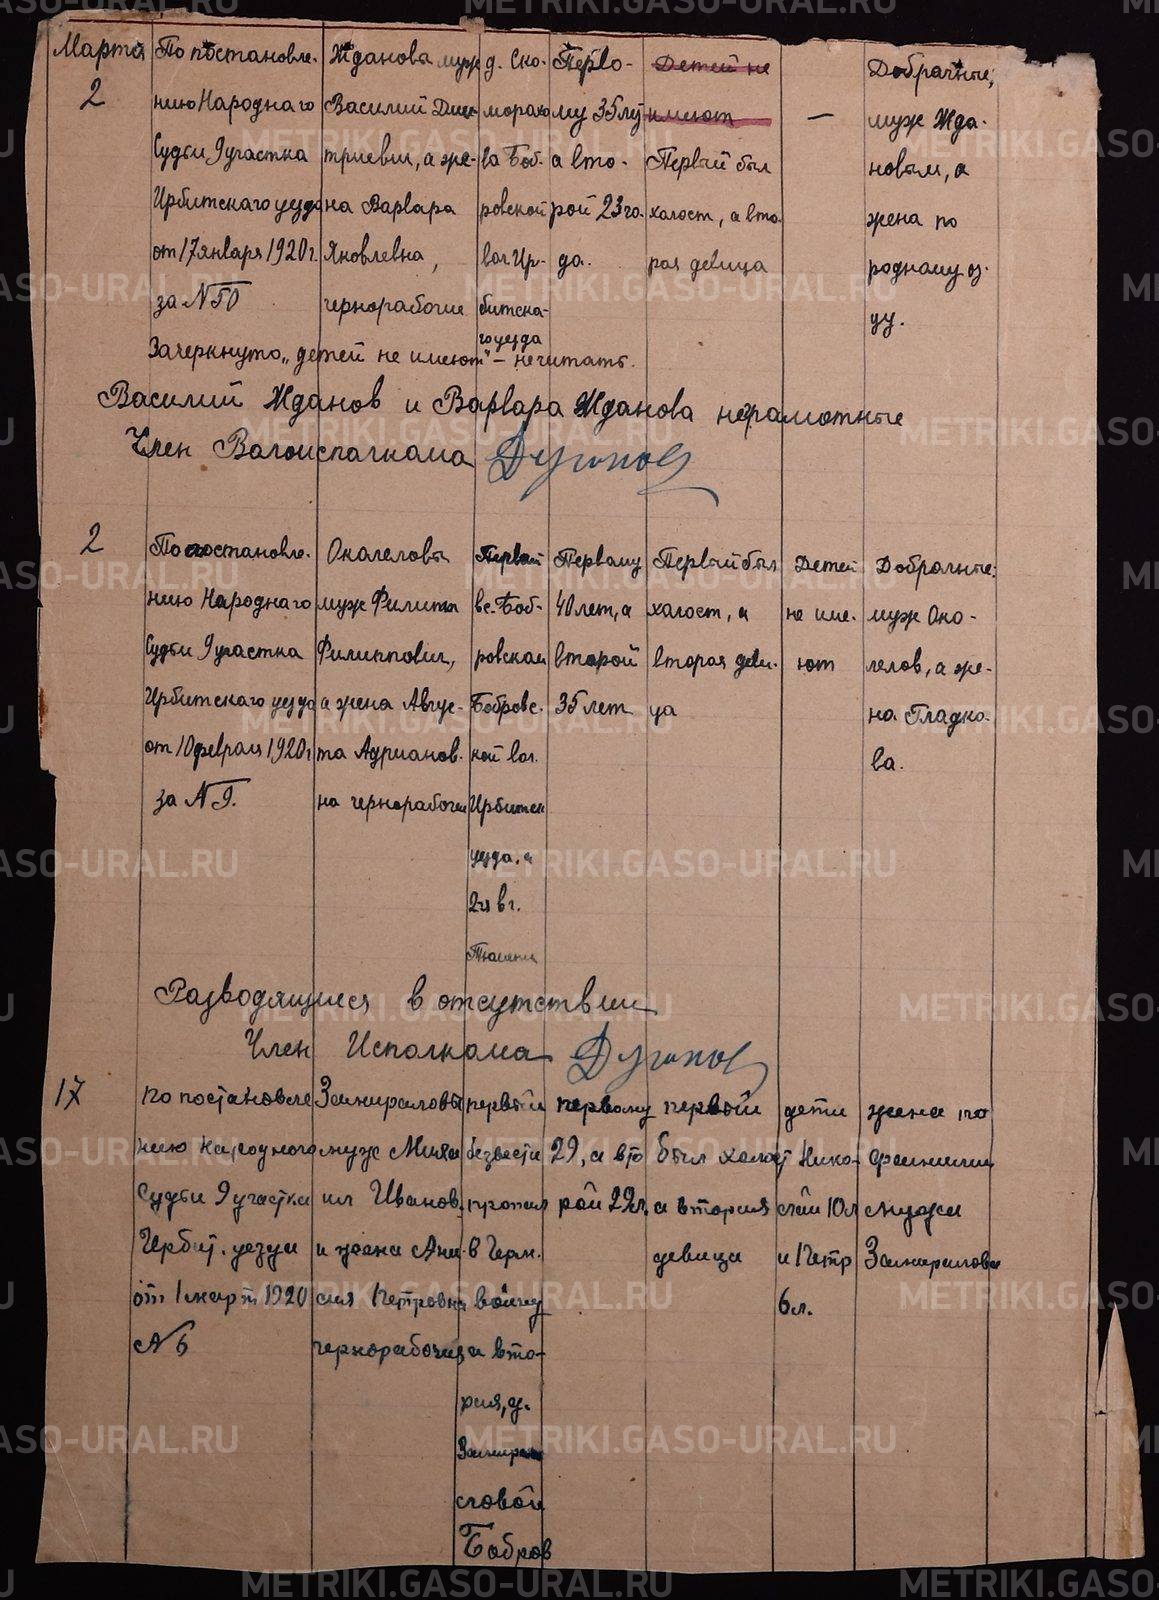 Марта
2
По постановле-
нию Народнаго
Судьи 9 участка
Ирбитскаго уезда
от 17 января 1920 г.
за №
Ждановы муж
Василий Дми-
триевич, а же-
на Варвара
Яковлевна,
чернорабочие
д. Ско-
морохо
ва Боб-
ровской
вол. Ир-
битска-
го уезда
Перво-
му 35 лет
а вто-
рой 23 го-
да.
Детей не
имеют
Первый был
холост, а вто-
рая девица
—
Добрачные,
муж Жда-
новым, а
жена по
родному от-
цу.
Зачеркнуто „детей не имеют" – не читать.
Василий Жданов и Варвара Жданова неграмотные
Член Волисполкома
2
По постановле-
нию Народнаго
Судьи 9 участка
Ирбитскаго уезда
от 10 февраля 1920 г.
за № 9.
Окалеловы
муж Филипп
Филиппович,
а жена Авгус-
та Адрианов-
на чернорабочие
Первый
в с. Боб-
ровском
Бобровс-
кой вол.
Ирбитск
уезда, а
2ая в г.
Тюмени
Первому
40 лет, а
второй
35 лет
Первый был
холост, а
вторая деви-
ца
Детей
не име-
ют
Добрачные:
муж Ока-
лелов, а же-
на Гладко-
ва.
Разводящиеся в отсутствии
Член Исполкома
17
по постановле
нию народного
Судьи 9 участка
Ирбит. уезда
от 1 март 1920
№ 6
Замираловы
муж Миха
ил Иванов.
и жена Ана-
сия Петровна
чернорабочия
первый
безвести
пропал
в Герм.
войну
а вто-
рая, д.
Замира
ловой
Бобров
первому
29, а вто
рой 29 л.
первой
был холост
а вторая
девица
дети
Нико-
лай 10 л
и Петр
6 л.
жена по
фамилии
мужа
Замиралова
METRIKI.GASO-URAL.RU